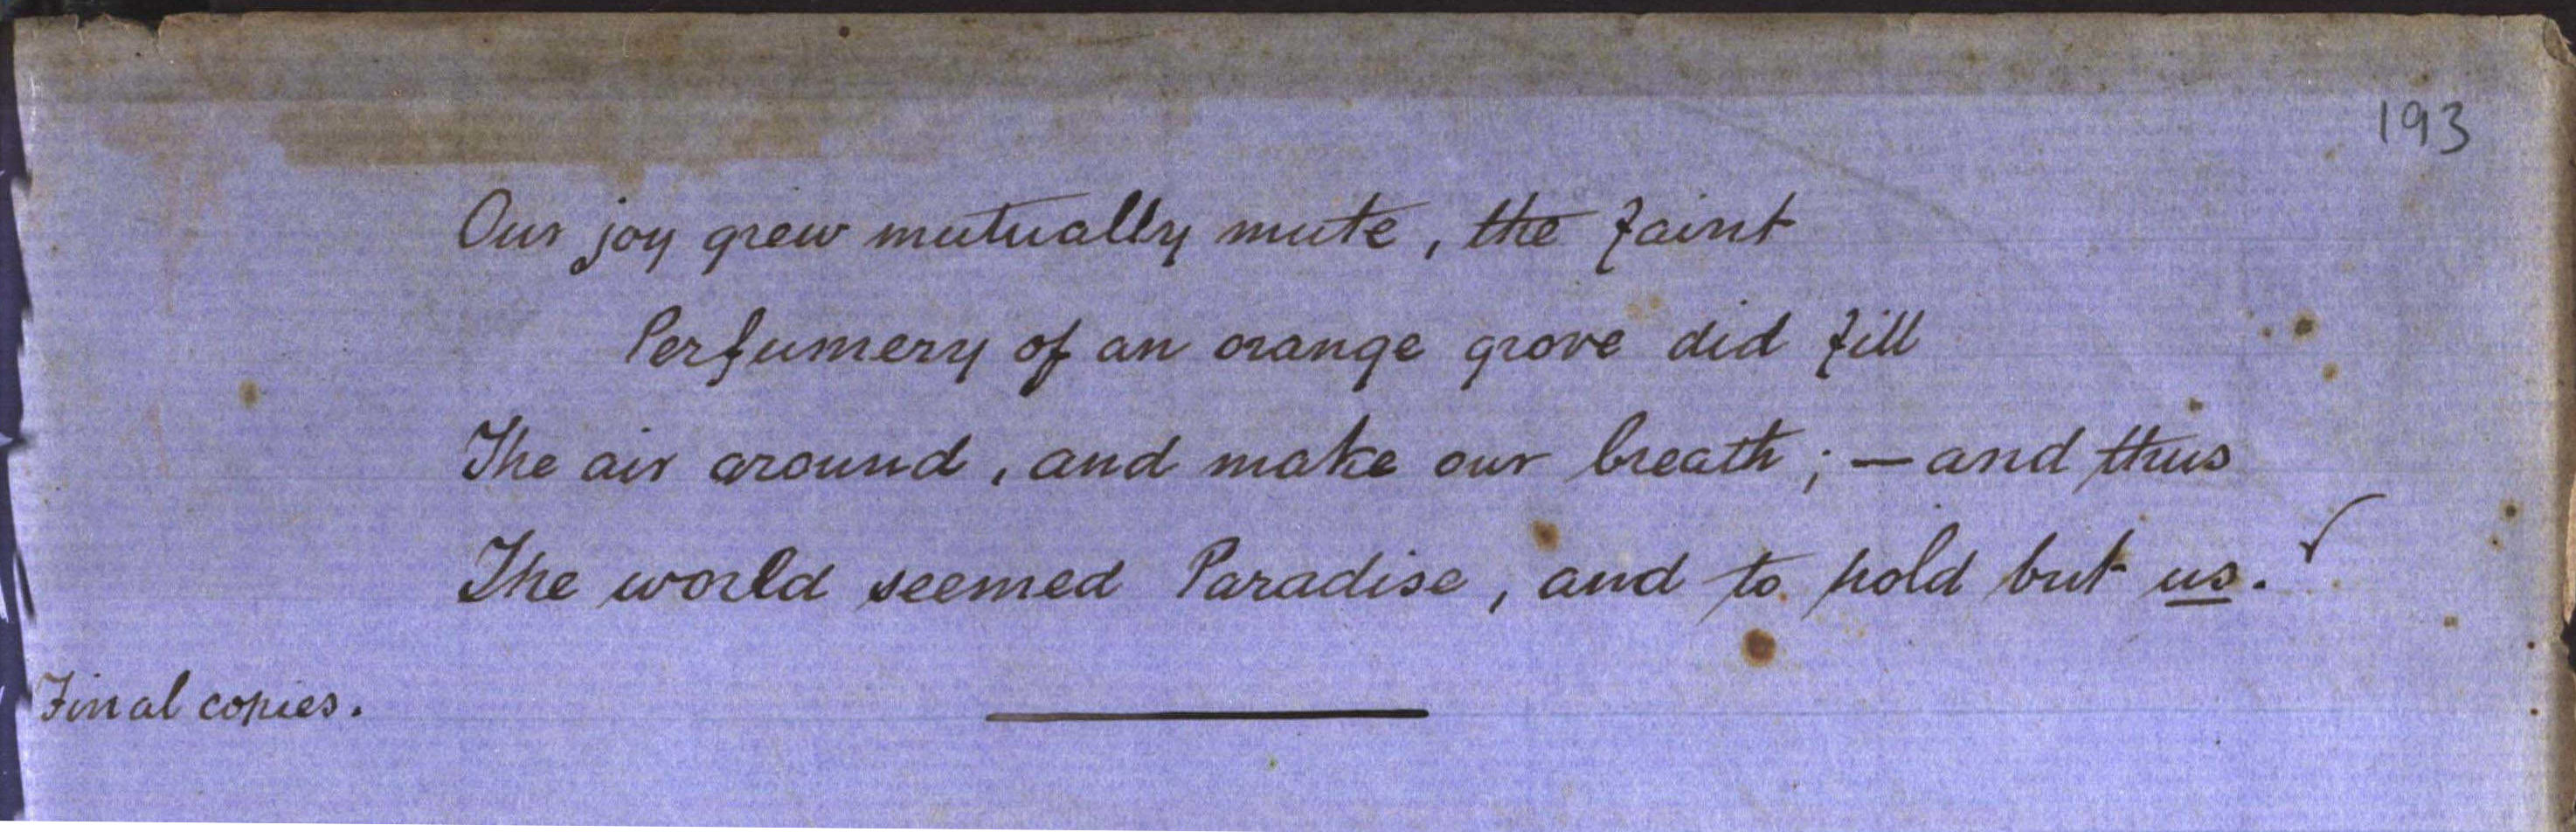 193
Our joy grew mutually mute, the faint
Perfumery of an orange grove did fill
The air around, and make our breath; — and thus
The world seemed Paradise, and to hold but us.
Final copies.